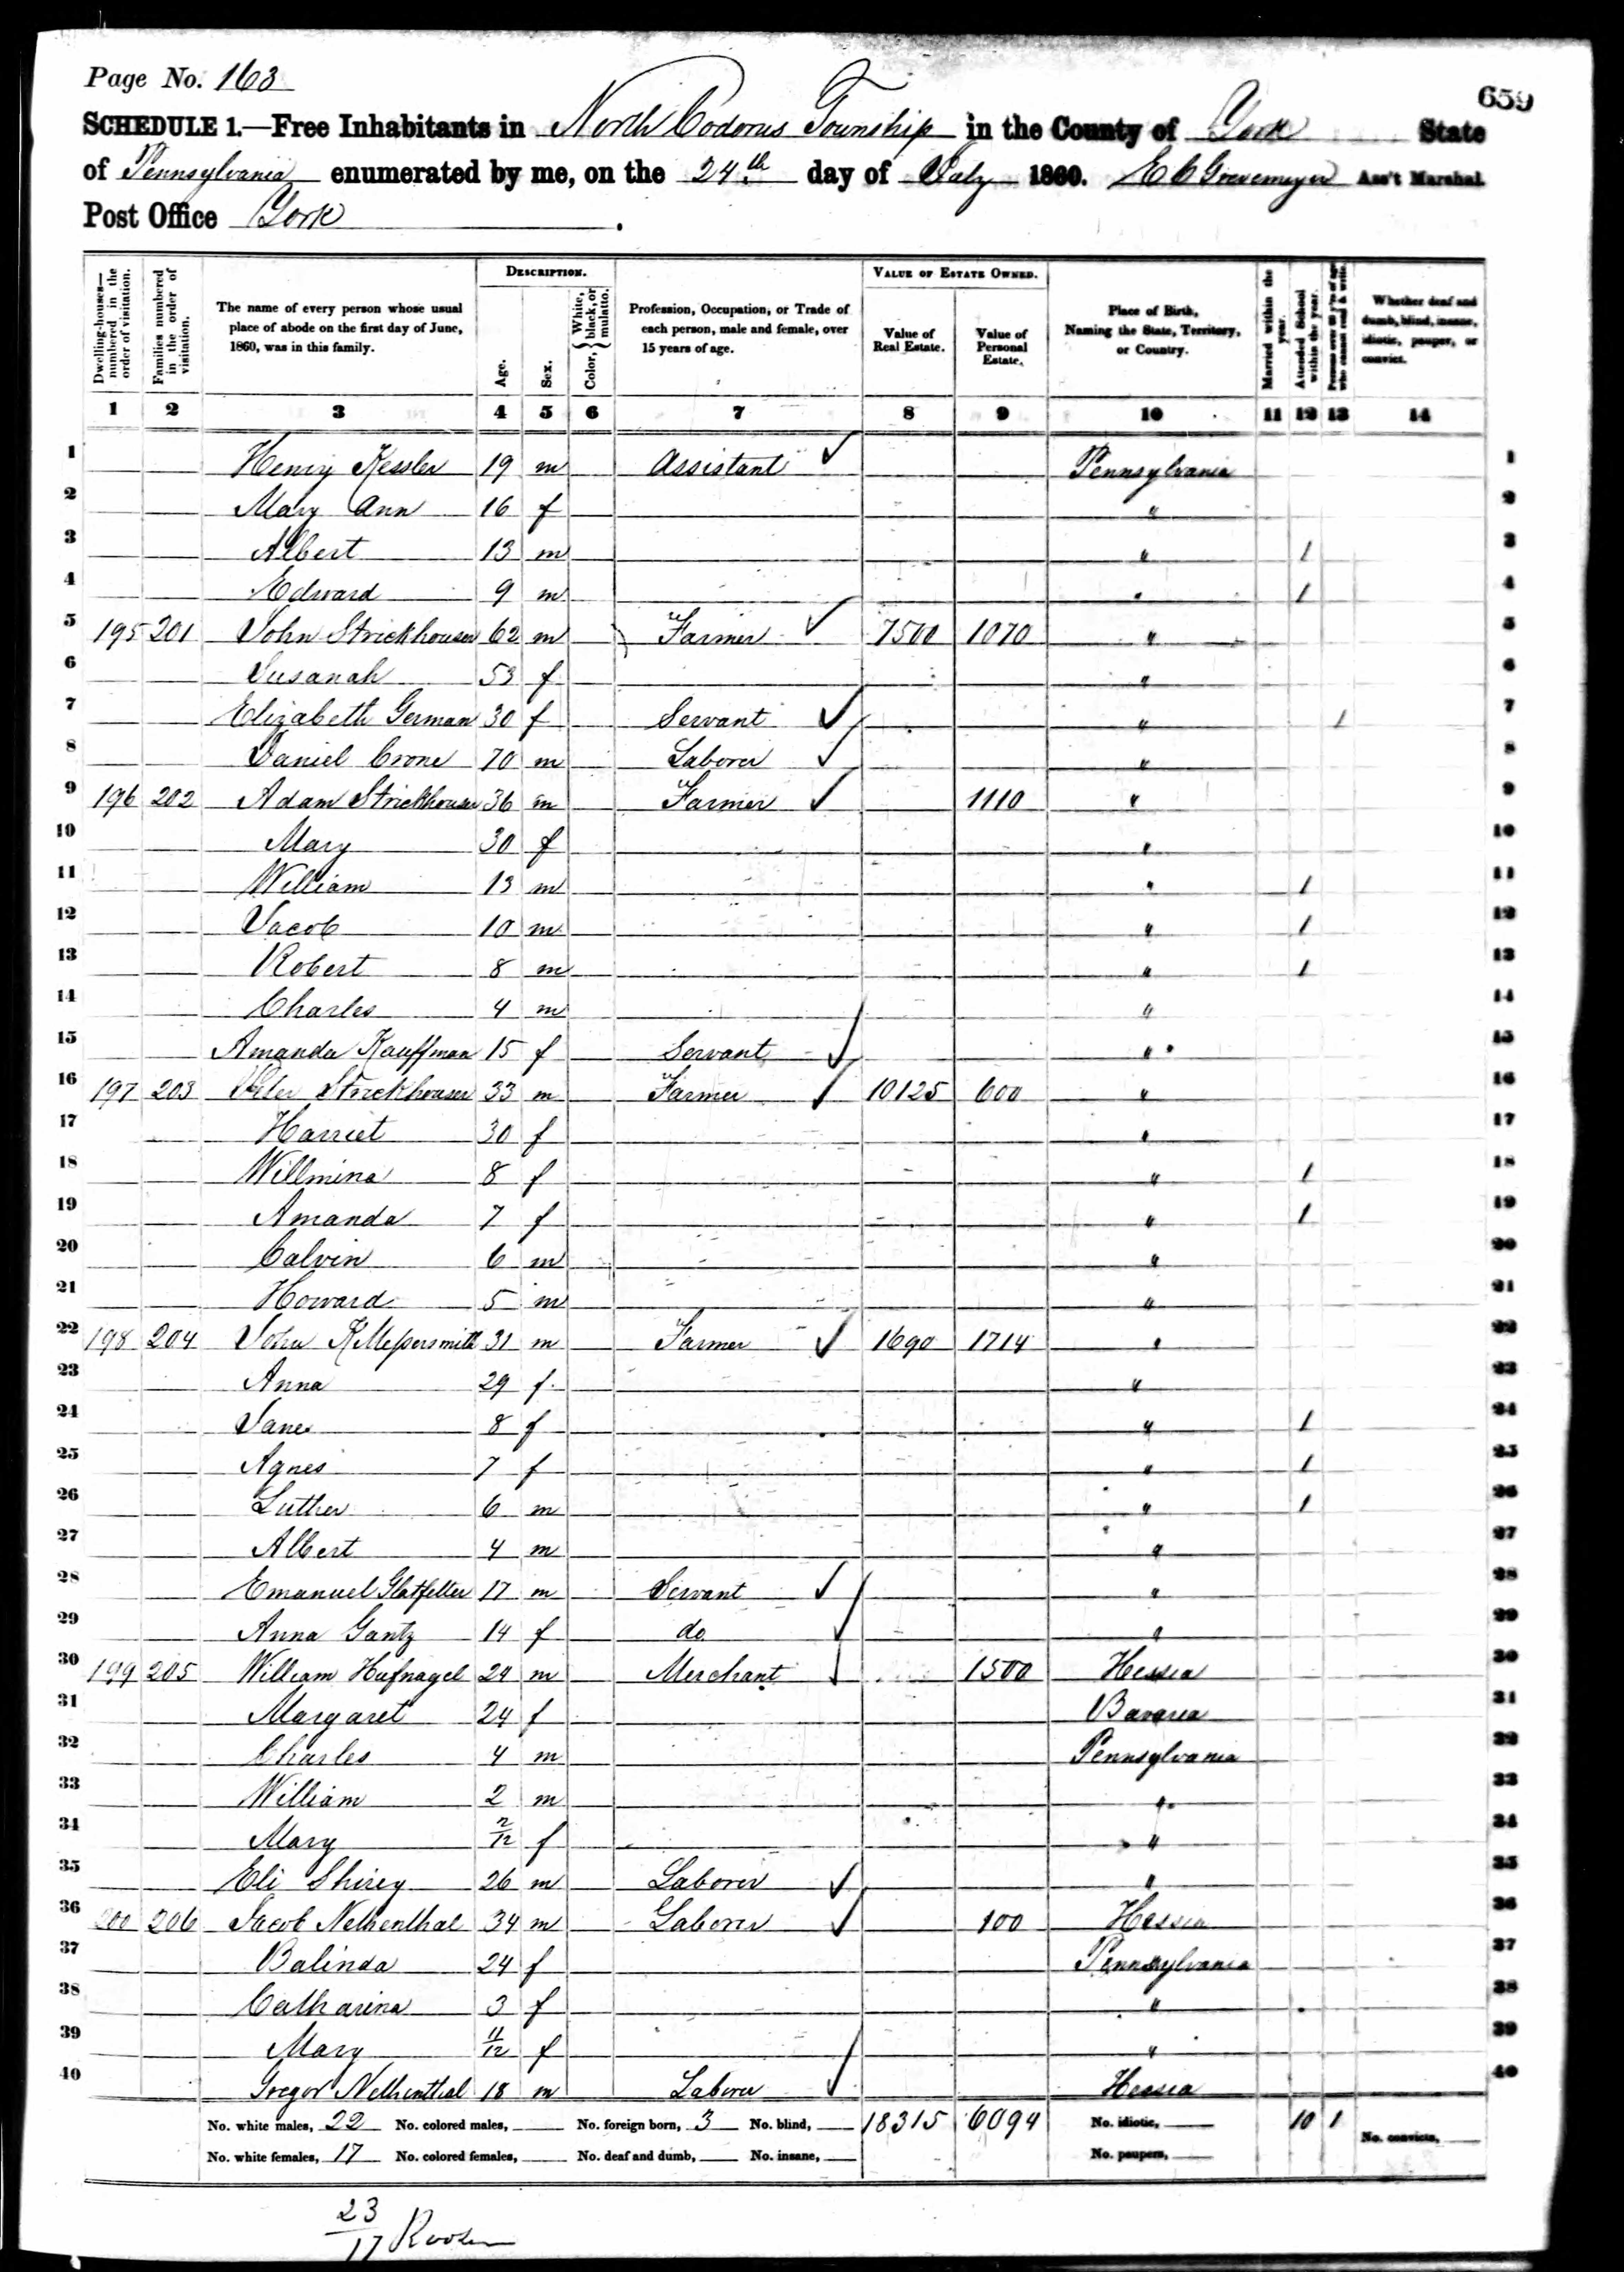 Page No. 163
659
SCHEDULE 1.—Free Inhabitants in North Codorus Township in the County of York State
of Pennsylvania enumerated by me, on the 24th day of July 1860. E C Grevemeyer Ass't Marshal.
Post Office York.
Dwelling-houses—numbered in the order of visitation. Families numbered in the order of visitation. The name of every person whose usual place of abode on the first day of June, 1860, was in this family. DESCRIPTION. Age. Sex. Color, { White, black, or mulatto. Profession, Occupation, or Trade of each person, male and female, over 15 years of age. VALUE OF ESTATE OWNED. Value of Real Estate. Value of Personal Estate. Place of Birth, Naming the State, Territory, or Country. Married within the year. Attended School within the year. Persons over 20 y'rs of age who cannot read & write. Whether deaf and dumb, blind, insane, idiotic, pauper, or convict.
1 2 3 4 5 6 7 8 9 10 11 12 13 14
1 Henry Kessler 19 m Assistant ✓ Pennsylvania 1
2 Mary Ann 16 f " 2
3 Albert 13 m " 1 3
4 Edward 9 m " 1 4
5 195 201 John Strickhouser 62 m Farmer ✓ 7500 1070 " 5
6 Susanah 53 f " 6
7 Elizabeth German 30 f Servant ✓ " 1 7
8 Daniel Crone 70 m Laborer ✓ " 8
9 196 202 Adam Strickhouser 36 m Farmer ✓ 1110 " 9
10 Mary 30 f " 10
11 William 13 m " 1 11
12 Jacob 10 m " 1 12
13 Robert 8 m " 1 13
14 Charles 4 m " 14
15 Amanda Kauffman 15 f Servant ✓ " 15
16 197 203 Peter Strickhouser 33 m Farmer ✓ 10125 600 " 16
17 Harriet 30 f " 17
18 Willmina 8 f " 1 18
19 Amanda 7 f " 1 19
20 Calvin 6 m " 20
21 Howard 5 m " 21
22 198 204 John K Messersmith 31 m Farmer ✓ 1690 1714 " 22
23 Anna 29 f " 23
24 Jane 8 f " 1 24
25 Agnes 7 f " 1 25
26 Luther 6 m " 1 26
27 Albert 4 m " 27
28 Emanuel Glatfelter 17 m Servant ✓ " 28
29 Anna Gantz 14 f do ✓ " 29
30 199 205 William Hufnagel 24 m Merchant ✓ 1500 Hessia 30
31 Margaret 24 f Bavaria 31
32 Charles 4 m Pennsylvania 32
33 William 2 m " 33
34 Mary 2/12 f " 34
35 Eli Shirey 26 m Laborer ✓ " 35
36 200 206 Jacob Nethenthal 34 m Laborer ✓ 100 Hessia 36
37 Balinda 24 f Pennsylvania 37
38 Catharina 3 f " 38
39 Mary 11/12 f " 39
40 Gregor Nethenthal 18 m Laborer ✓ Hessia 40
No. white males, 22 No. colored males, No. foreign born, 3 No. blind, 18315 6094 No. idiotic, 10 1 No. convicts,
No. white females, 17 No. colored females, No. deaf and dumb, No. insane, No. paupers,
23
17